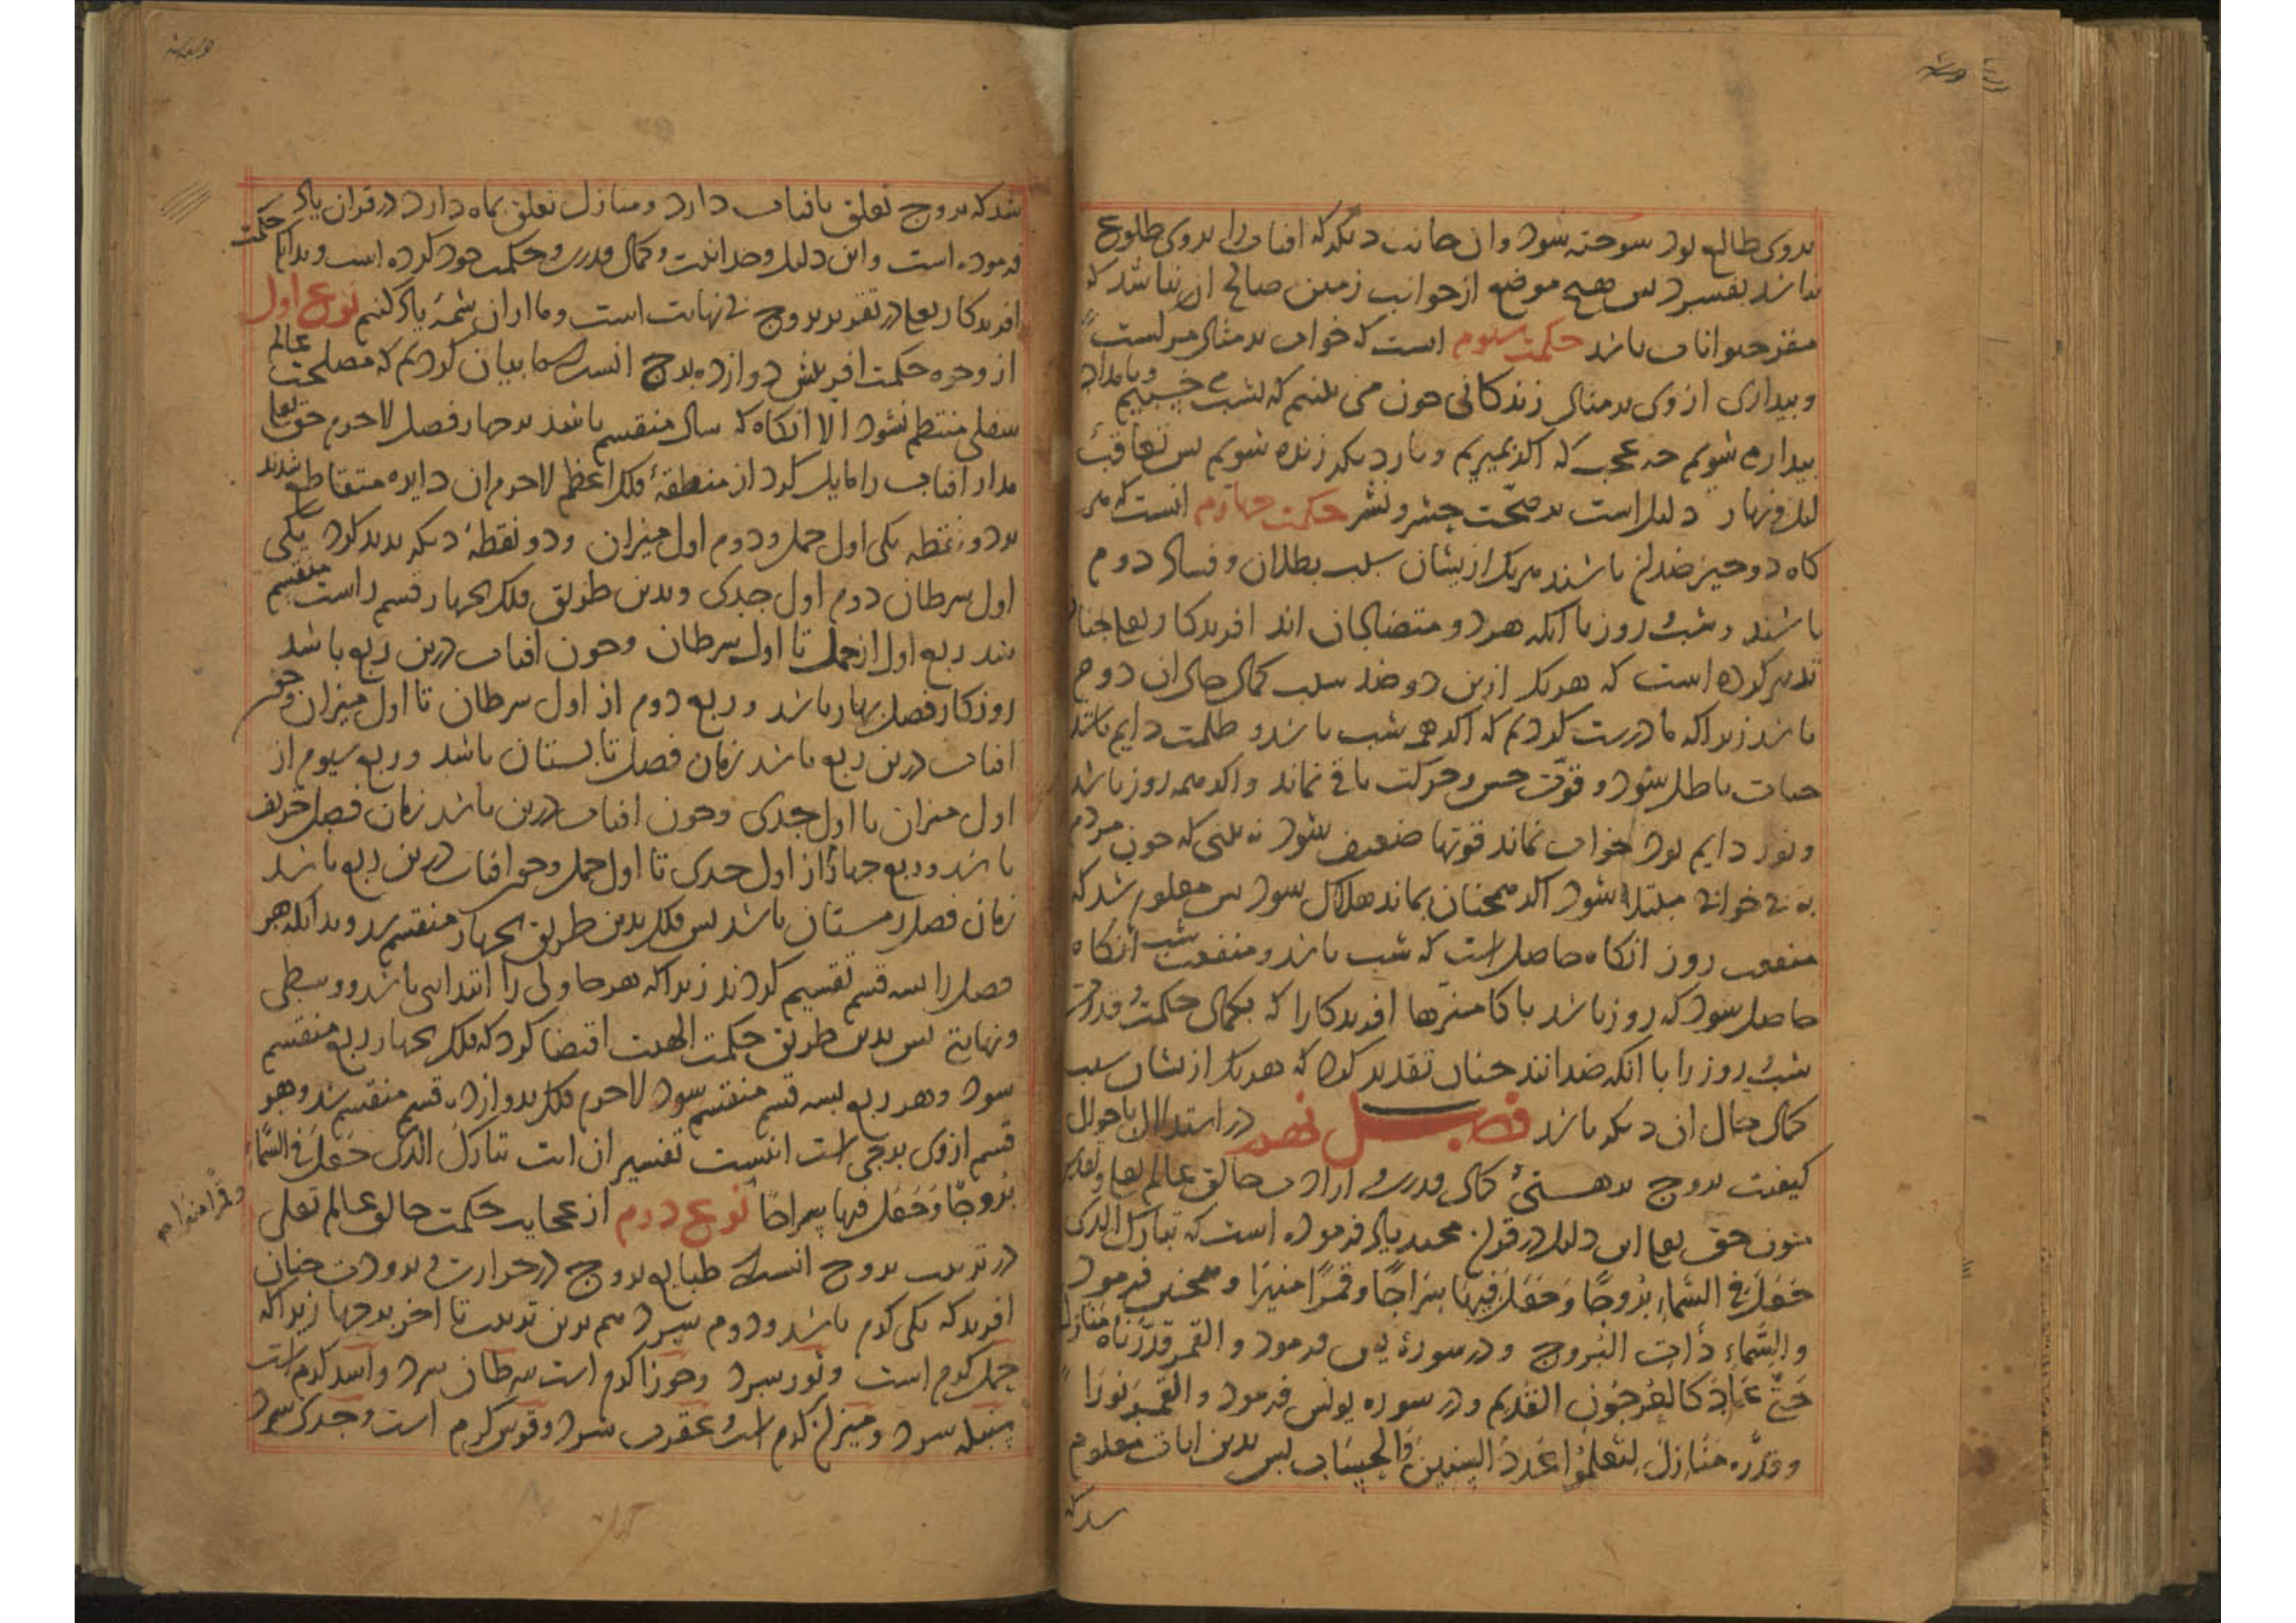 بروی طالع بود سوخته شود و ان جانب دیگر که افتاب را بروی طلوع
نباشد بفسرد پس هیچ موضع از جوانب زمین صالح ان نباشد که
مقر حیوانات باشد حکمت سیوم است که خواب بر مثال مرگست
و بیداری از وی بر مثال زندگانی چون می بینیم که بشب می خسبیم و بامداد
بیدار می شویم چه عجب که اگر بمیریم و بار دیگر زنده شویم پس تعاقب
لیل و نهار دلیل است بر صحت حشر و نشر حکمت چهارم انست که هر
گاه دو چیز ضدان باشند هر یک ازیشان سبب بطلان و فساد دوم
باشند و شب و روز با انکه هر دو متضادان اند افریدگار تعا چنان
تدبیر کرده است که هر یک ازین دو ضد سبب کمال حال ان دوم
باشد زیرا که ما درست کردیم که اگر همه شب باشد و ظلمت دایم باشد
حیات باطل شود و قوت حس و حرکت باقی نماند و اگر همه روز باشد
و نور دایم بود خواب نماند قوتها ضعیف شود نه بینی که چون مردم
به بی خوابی مبتلا شود اگر همچنان بماند هلاک شود پس معلوم شد که
منفعت روز انگاه حاصل است که شب باشد و منفعت شب انگاه
حاصل شود که روز باشد پاکا منزها افریدگارا که بکمال حکمت و قدرت
شب و روز را با انکه ضدانند چنان تقدیر کرد که هر یک ازیشان سبب
کمال حال ان دیگر باشد فصل نهم در استدلال باحوال
کیفیت بروج بر هستی کمال قدرت و ارادت خالق عالم تعا و تقدس
چون حق تعا این دلیل در قران مجید یاد فرموده است که تبارک الذی
جَعَلَ فی السَّماءِ بُرُوجًا وَ جَعَلَ فیها سِرَاجًا وَ قَمَرًا مُنیرًا و همچنین فرمود
والسَّماءِ ذاتِ البُروج و در سورۀ یس فرمود و القمر قدَّرناه منازل
حَتّی عَادَ کالعُرجُونِ القَدیم و در سوره یونس فرمود و القَمَر نُورًا
و قدَّره مَنَازِلَ لِتَعلَمُوا عَدَدَ السِنینَ وَالحِسَاب پس بدین ایات معلوم
شد که
شد که بروج تعلق بافتاب دارد و منازل تعلق بماه دارد در قران یاد
فرموده است و این دلیل وحدانیت و کمال قدرت و حکمت خود کرده است و بدانک حکمت
افریدگار تعا در تقدیر بروج بی نهایت است و ما از ان شمۀ یاد کنیم نوع اول
از وجوه حکمت افرینش دوازده برج انست که ما بیان کردیم که مصلحت عالم
سفلی منتظم نشود الا انگاه که سال منقسم باشد بر چهار فصل لاجرم حق تعا
مدار افتاب را مایل کرد از منطقۀ فلک اعظم لاجرم ان دایره متقاطع شدند
بر دو نقطه یکی اول حمل و دوم اول میزان و دو نقطۀ دیگر پدید کرد یکی
اول سرطان دوم اول جدی و بدین طریق فلک بچهار قسم راست منقسم
شد ربع اول از حمل تا اول سرطان و چون افتاب درین ربع باشد
روزگار فصل بهار باشد و ربع دوم از اول سرطان تا اول میزان و چون
افتاب درین ربع باشد زمان فصل تابستان باشد و ربع سیوم از
اول میزان تا اول جدی و چون افتاب درین باشد زمان فصل خریف
باشد و ربع چهارم از اول جدی تا اول حمل و چون افتاب درین ربع باشد
زمان فصل زمستان باشد پس فلک بدین طریق بچهار منقسم شد و بدانکه هر
فصل را بسه قسم تقسیم کردند زیرا که هر حاولی را ابتدایی باشد و وسطی
و نهایتی پس بدین طریق حکمت الهیت اقتضا کرد که فلک بچهار ربع منقسم
شود و هر ربع بسه قسم منقسم شود لاجرم فلک بدوازده قسم منقسم شد و هر
قسم از وی برجی است اینست تفسیر ان ایت تبارک الذی جَعَلَ فی السَّماءِ
بُرُوجًا وَ جَعَلَ فیها سِراجًا نوع دوم از عجایب حکمت خالق عالم تعالی
وقمرا منیرا
در ترتیب بروج انست که طبایع بروج در حرارت و برودت چنان
افرید که یکی گرم باشد و دوم سرد هم برین ترتیب تا اخر برجها زیرا که
حمل گرم است و ثور سرد و جوزا گرم است سرطان سرد و اسد گرم است
سنبله سرد و میزان گرم است و عقرب سرد و قوس گرم است و جدی سرد